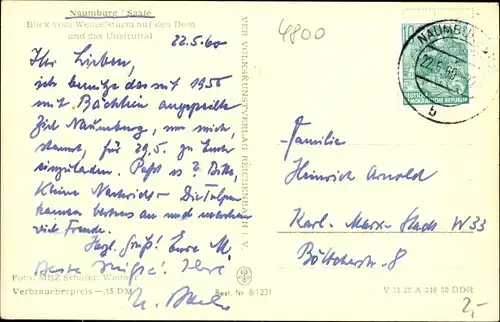 Naumburg / Saale
Blick vom Wenzelsturm auf den Dom
und das Unstruttal
22.5.60
Ihr Lieben,
ich benutze das seit 1956
mit Bächlein angepeilte
Ziel Naumburg, um mich,
stammt, für 29.5. zu Euch
einzuladen. Paßt es? Bitte,
kleine Nachricht - Die Tulpen
kamen bestens an und
viel Freude.
Hzgl. Gruß! Eure M.
Beste Grüße! Ihre
Foto: MBZ Schäfer, Weimar
Verbraucherpreis —,15 DM
Best. Nr. 8/1231
VEB VOLKSKUNSTVERLAG REICHENBACH I. V.
4800
NAUMBURG
22.5.60
b
10
DEUTSCHE
DEMOKRATISCHE REPUBLIK
Familie
Heinrich Arnold
Karl-Marx-Stadt W33
Böttcherstr. 8
V 11 28 A 218 60 DDR
2,-